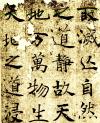 取滅亡自然
之道靜故天
地萬物生
天地之道浸